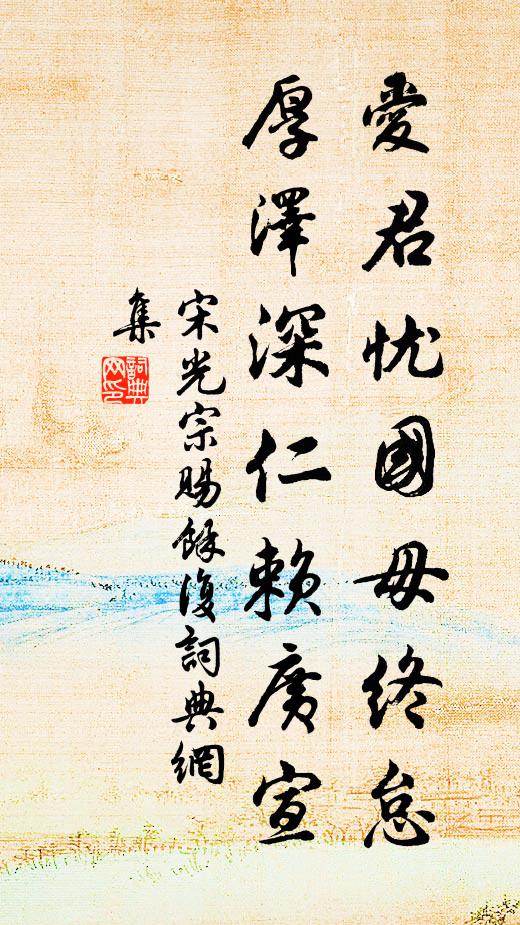 愛君忧國毋終怠
厚澤深仁賴廣宣
宋光宗賜餘復詞典網
集
詞典
网印